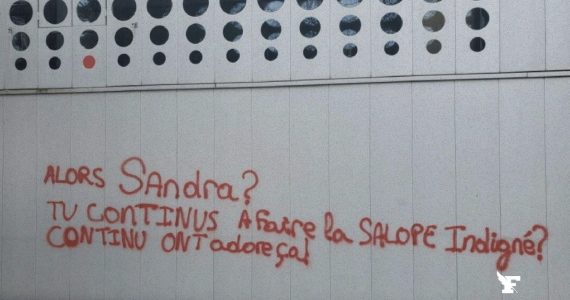 ALORS SAndra?
TU CONTINUS A faire la SALOPE Indigné?
CONTINU ONT adore ça!
F